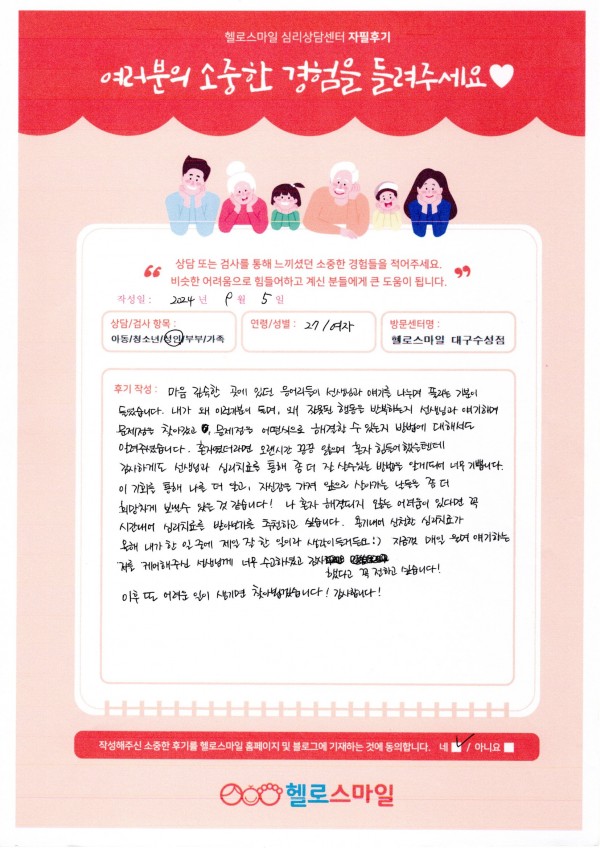 헬로스마일 심리상담센터 자필후기
여러분의 소중한 경험을 들려주세요
상담 또는 검사를 통해 느끼셨던 소중한 경험들을 적어주세요.
비슷한 어려움으로 힘들어하고 계신 분들에게 큰 도움이 됩니다.
작성일 : 2024 년 9 월 5 일
상담/검사 항목 :
아동/청소년/성인/부부/가족
연령/성별 : 27 / 여자
방문센터명 :
헬로스마일 대구수성점
후기 작성 : 마음 깊숙한 곳에 있던 응어리들이 선생님과 얘기를 나누며 풀리는 기분이
들었습니다. 내가 왜 이런기분이 들며, 왜 잘못된 행동을 반복하는지 선생님과 얘기하며
문제점을 찾아갔고, 문제점을 어떤식으로 해결할 수 있는지 방법에 대해서도
알려주셨습니다. 혼자였더라면 오랜시간 끙끙 앓으며 혼자 힘들어했을텐데
감사하게도 선생님과 심리치료를 통해 좀 더 잘 살수있는 방법을 알게되어 너무 기쁩니다.
이 기회를 통해 나를 더 알고, 자신감을 가져 앞으로 살아가는 난들을 좀 더
희망차게 보낼수 있을 것 같습니다! 나 혼자 해결되지 않는 어려움이 있다면 꼭
시간내어 심리치료를 받아보기를 추천하고 싶습니다. 용기내어 신청한 심리치료가
올해 내가 한 일 중에 제일 잘 한 일이라 생각이들거든요:) 지금껏 매일 울며 얘기하는
저를 케어해주신 선생님께 너무 수고하셨고 감사
했다고 꼭 전하고 싶습니다!
이후 또 어려운 일이 생기면 찾아뵙겠습니다! 감사합니다!
작성해주신 소중한 후기를 헬로스마일 홈페이지 및 블로그에 기재하는 것에 동의합니다. 네 / 아니요
헬로스마일